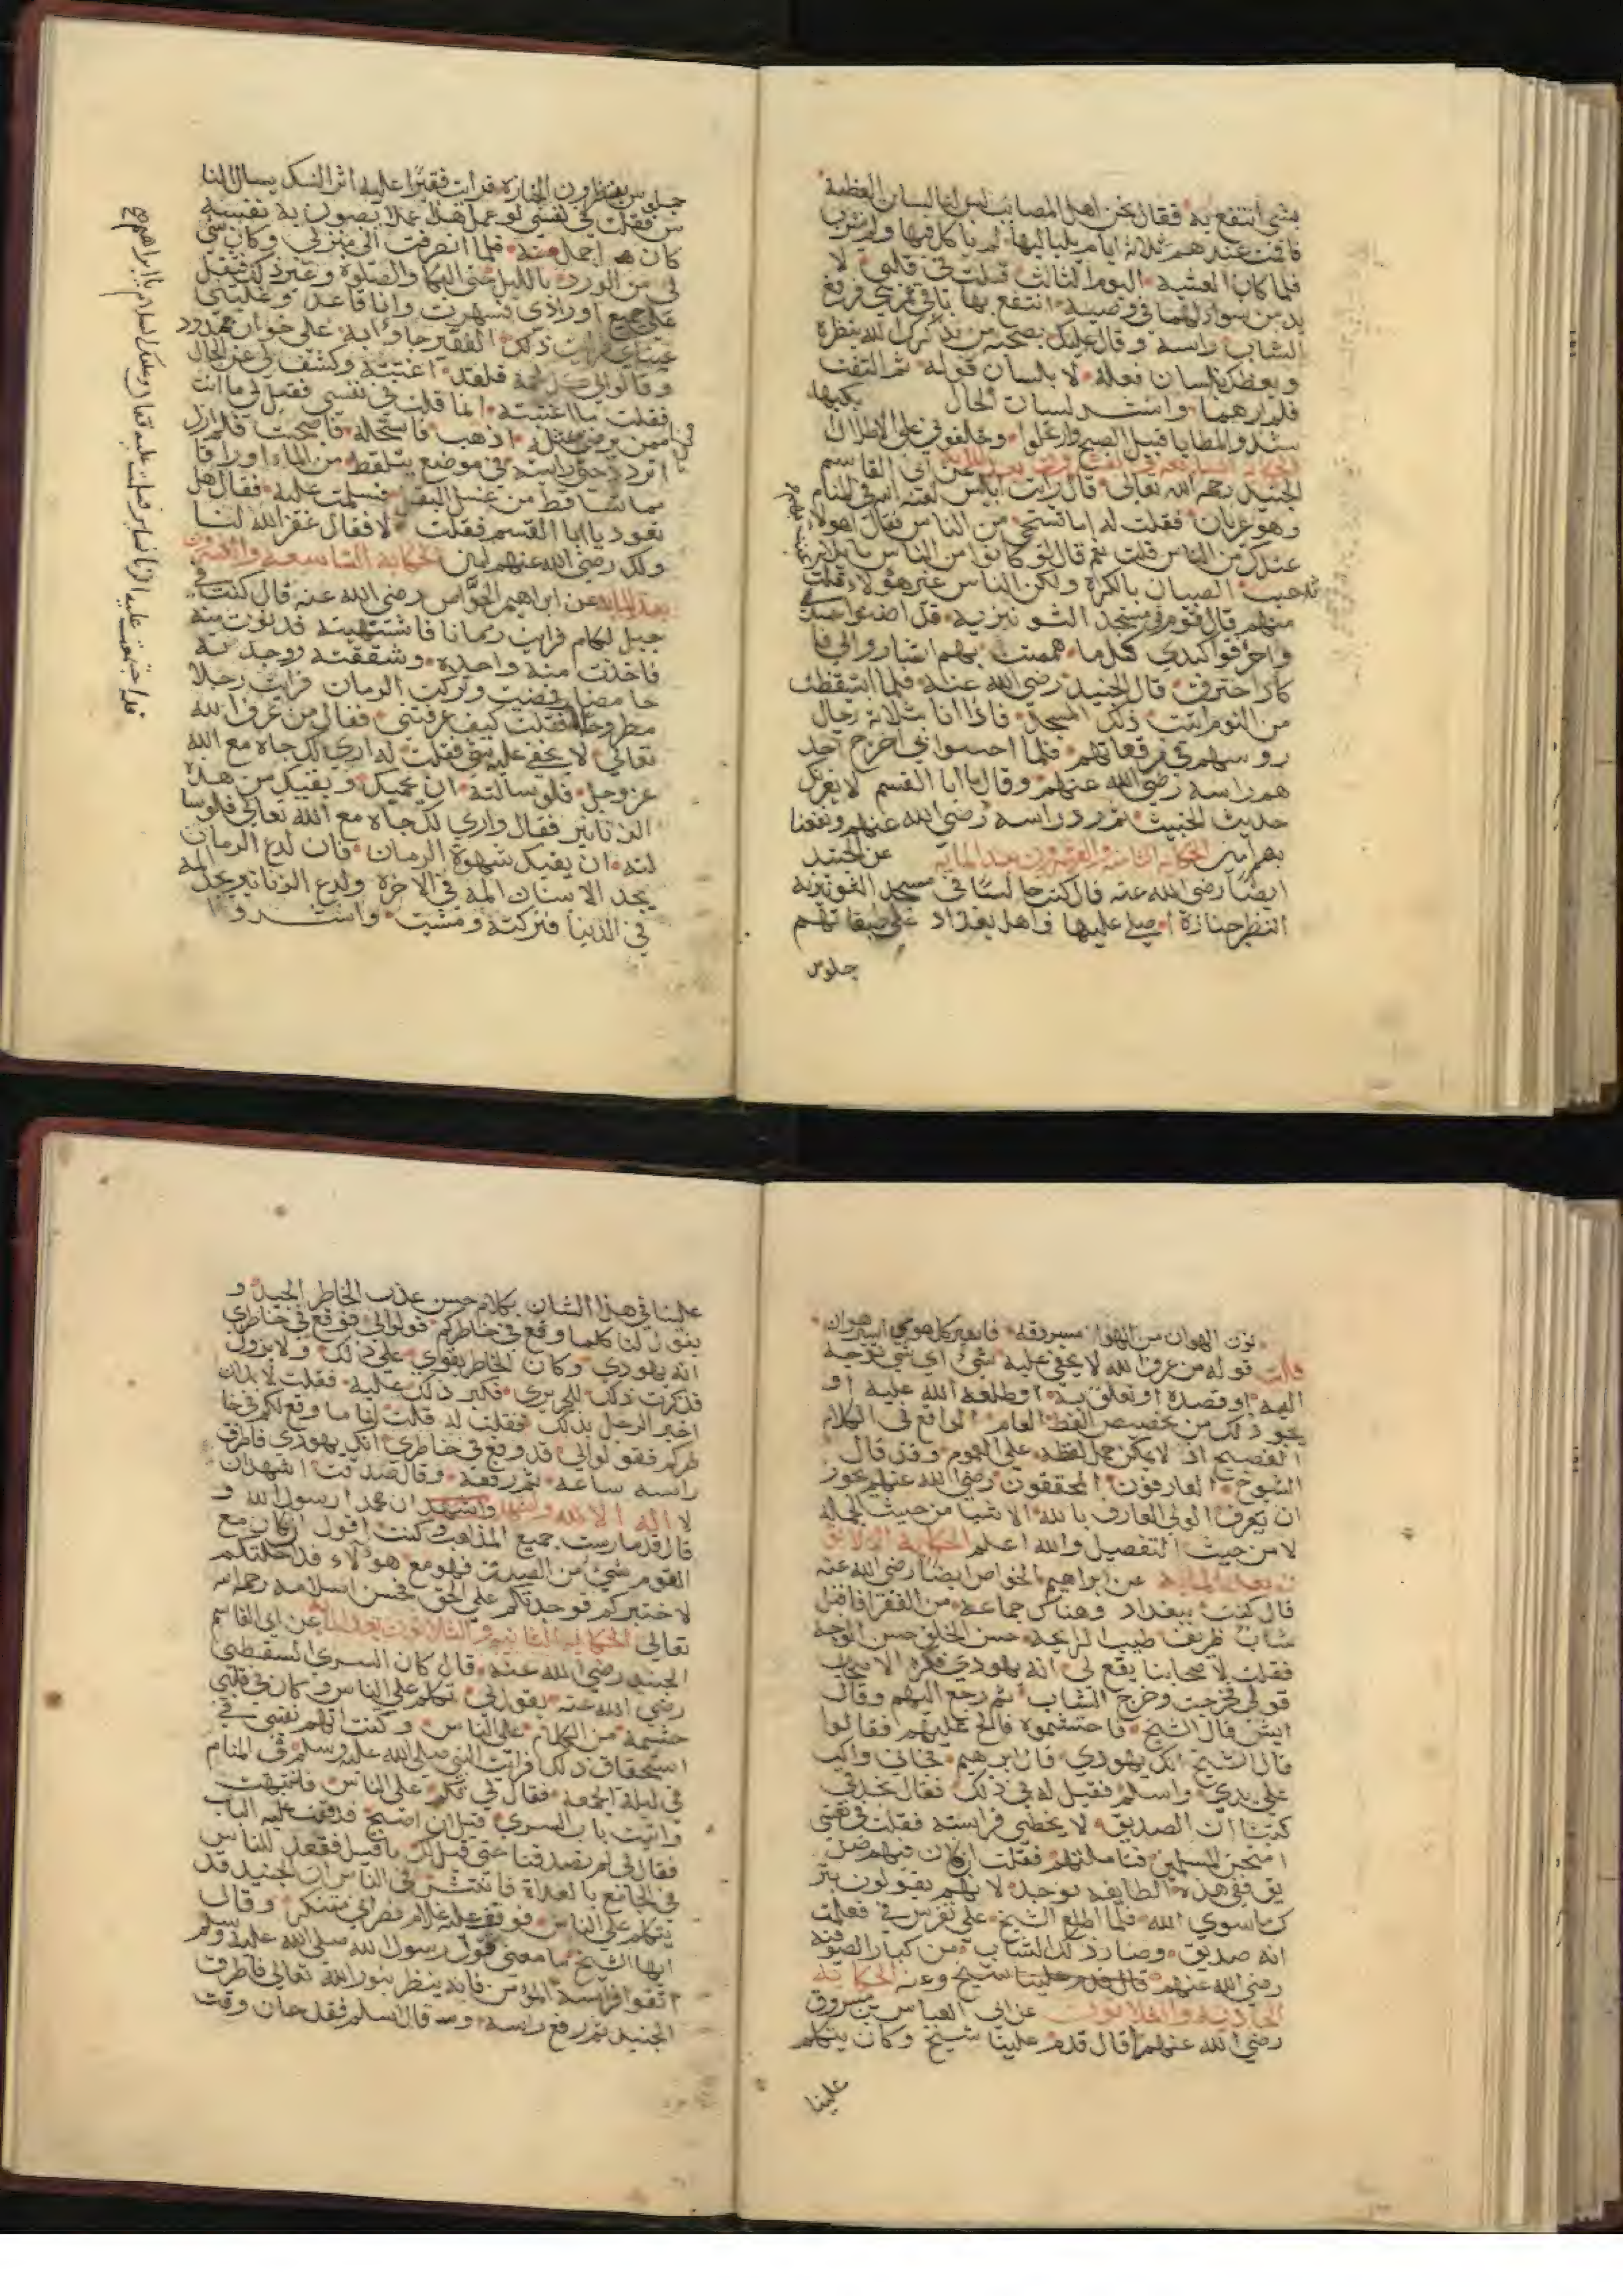 بشي انتفع به فقال نحن اهل المصائب ليس لنا لسان العظة
فاقمت عندهم ثلاثة ايام بلياليها لم ياكل فيها ولم يشرب
فلما كان العشية اليوم الثالث قلت في قلبي لا
بد من سوالهما في وصية انتفع بها باقي عمري فرفع
الشاب راسه وقال عليك بصحبة من يذكرك الله بنظره
ويعظك بلسان فعله لا بلسان قوله ثم التفت
فلم ارهما وانشد لسان الحال
شدو المطايا قبيل الصبح وارتحلوا وخلفوني على الاطلال
عن ابي القاسم
الجنيد رحمه الله تعالى قال رايت ابليس لعنه الله في المنام
وهو عريان فقلت له اما تستحي من الناس فقال اهولاء
عندك من الناس قلت نعم قال لو كانوا من الناس ما
الصبيان بالكرة ولكن الناس غير هؤلاء قلت
منهم قال قوم في مسجد الشونيزية قد اضنوا جسدي
واحرقوا كبدي كلما هممت بهم اشاروا الي فا
كاد احترق قال الجنيد رضي الله عنه فلما استيقظت
من النوم اتيت ذلك المسجد فاذا انا بثلاثة رجال
روسهم في مرقعاتهم فلما احسوا بي اخرج احد
هم راسه رضي الله عنهم وقال يا ابا القسم لا يغرك
حديث الخبيث ثم رد راسه رضي الله عنهم ونفعنا
بهم امين الحكاية الثامنة والعشرون بعد المايه عن الجنيد
ايضا رضي الله عنه قال كنت جالسا في مسجد الشونيزيه
انتظر جنازة اصلي عليها واهل بغداد على طبقاتهم
جلوس
جلوس ينتظرون الجنازة فرايت فقيرا عليه اثر النسك يسال النا
س فقلت في نفسي لو عمل هذا عملا يصون به نفسه
كان اجمل منه فلما انصرفت الى منزلي وكان شي
لي من الورد بالليل حتى البكا والصلوة وغير ذلك فثقل
علي جميع اورادي فسهرت وانا قاعد وغلبتني
عيناي فرايت ذلك الفقير جاوا به على خوان ممدود
وقالوا لي كل لحمه فلقد اغتبته وكشف لي عن الحال
فقلت ما اغتبته انما قلت في نفسي فقيل لي ما انت
ممن يرضى بمثله اذهب فاستحله فاصبحت فلم ازل
اتردد حتى رايته في موضع يتلقط من الماء اوراقا
مما تساقط من غسل البقل فسلمت عليه فقال هل
تعود يا ابا القسم فقلت لا فقال غفر الله لنا
ولك رضي الله عنهم امين الحكاية التاسعة والعشرون
بعد المايه عن ابراهيم الخواص رضي الله عنه قال كنت في
جبل لكام فرايت رمانا فاشتهيته فدنوت منه
فاخذت منه واحدة وشققته فوجدته
حامضا فمضيت وتركت الرمان فرايت رجلا
مطروحا فقلت كيف عرفتني فقال من عرف الله
تعالى لا يخفى عليه شي فقلت له اري لك جاه مع الله
عز وجل فلو سالته ان يحميك ويقيك من هذه
الزنانير فقال واري لك جاه مع الله تعالى فلو سا
لته ان يقيك شهوة الرمان فان لدغ الرمان
يجد الانسان المه في الاخرة ولدغ الزنانير يجد المه
في الدنيا فتركته ومشيت وانشدوا
نون الهوان من الهوا مسروقة فاسير كل هوى اسير هوان
قلت قوله من عرف الله لا يخفى عليه شي اي شي توجه
اليه او قصده او تعلق به او طلعه الله عليه او
نحو ذلك من تخصيص اللفظ العام الواقع في الكلام
الفصيح اذ لا يمكن حمل لفظه على العموم وقد قال
الشيوخ العارفون المحققون رضي الله عنهم يجوز
ان يعرف الولي العارف بالله الاشيا من حيث الجمله
لا من حيث التفصيل والله اعلم الحكاية الثلاثو
ن بعد المايه عن ابراهيم الخواص ايضا رضي الله عنه
قال كنت ببغداد وهناك جماعة من الفقرا فاقبل
شاب ظريف طيب الرايحة حسن الخلق حسن الوجه
فقلت لاصحابنا يقع لي انه يهودي فكره الاصحاب
قولي فخرجت وخرج الشاب ثم رجع اليهم وقال
ايش قال الشيخ فاحتشموه فالح عليهم فقالوا
قال الشيخ انك يهودي قال ابراهيم فجاني واكب
على يدي واسلم فقيل له في ذلك فقال نجد في
كتبنا ان الصديق لا يخطي فراسته فقلت في نفسي
امتحن المسلمين فتاملتهم فقلت ان كان فيهم صد
يق ففي هذه الطايفة يوجد لانهم يقولون بتر
ك ما سوى الله فلما اطلع الشيخ على تفرس في فعلمت
انه صديق وصار ذلك الشاب من كبار الصوفيه
رضي الله عنهم قال قدم علينا شيخ الحكاية
الحادية والثلاثون عن ابي العباس بن مسروق
رضي الله عنهم قال قدم علينا شيخ وكان يتكلم
علينا
علينا في هذا الشان بكلام حسن عذب الخاطر الجيد و
يقول لنا كلما وقع في خاطركم قولوا لي فوقع في خاطري
انه يهودي وكان الخاطر يقوى على ذلك ولا يزول
فذكرت ذلك للجريري فكبر ذلك عليه فقلت لا بد ان
اخبر الرجل بذلك فقلت له قلت لنا ما وقع لكم في خا
طركم فقولوا لي قد وقع في خاطري انك يهودي فاطرق
راسه ساعة ثم رفعه وقال صدقت اشهد ان
لا اله الا الله واشهد ان محمدا رسول الله و
قال قد مارست جميع المذاهب وكنت اقول ان كان مع
القوم شي من الصدق فهو مع هؤلاء فداخلتكم
لاختبركم فوجدتكم على الحق فحسن اسلامه رحمه الله
تعالى الحكاية الثانيه والثلاثون بعد المايه عن ابي القاسم
الجنيد رضي الله عنه قال كان السري السقطي
رضي الله عنه يقول لي تكلم على الناس وكان في قلبي
حشمة من الكلام على الناس وكنت اتهم نفسي في
استحقاق ذلك فرايت النبي صلى الله عليه وسلم في المنام
في ليلة الجمعة فقال لي تكلم على الناس فانتبهت
واتيت باب السري قبل ان اصبح فدققت عليه الباب
فقال لي لم تصدقنا حتى قيل لك ما قيل فقعد للناس
في الجامع بالغداة فانتشر في الناس ان الجنيد قد
يتكلم على الناس فوقف عليه غلام نصراني متنكر وقال
ايها الشيخ ما معنى قول رسول الله صلى الله عليه وسلم
اتقوا فراسة المؤمن فانه ينظر بنور الله تعالى فاطرق
الجنيد ثم رفع راسه وقال اسلم فقد حان وقت